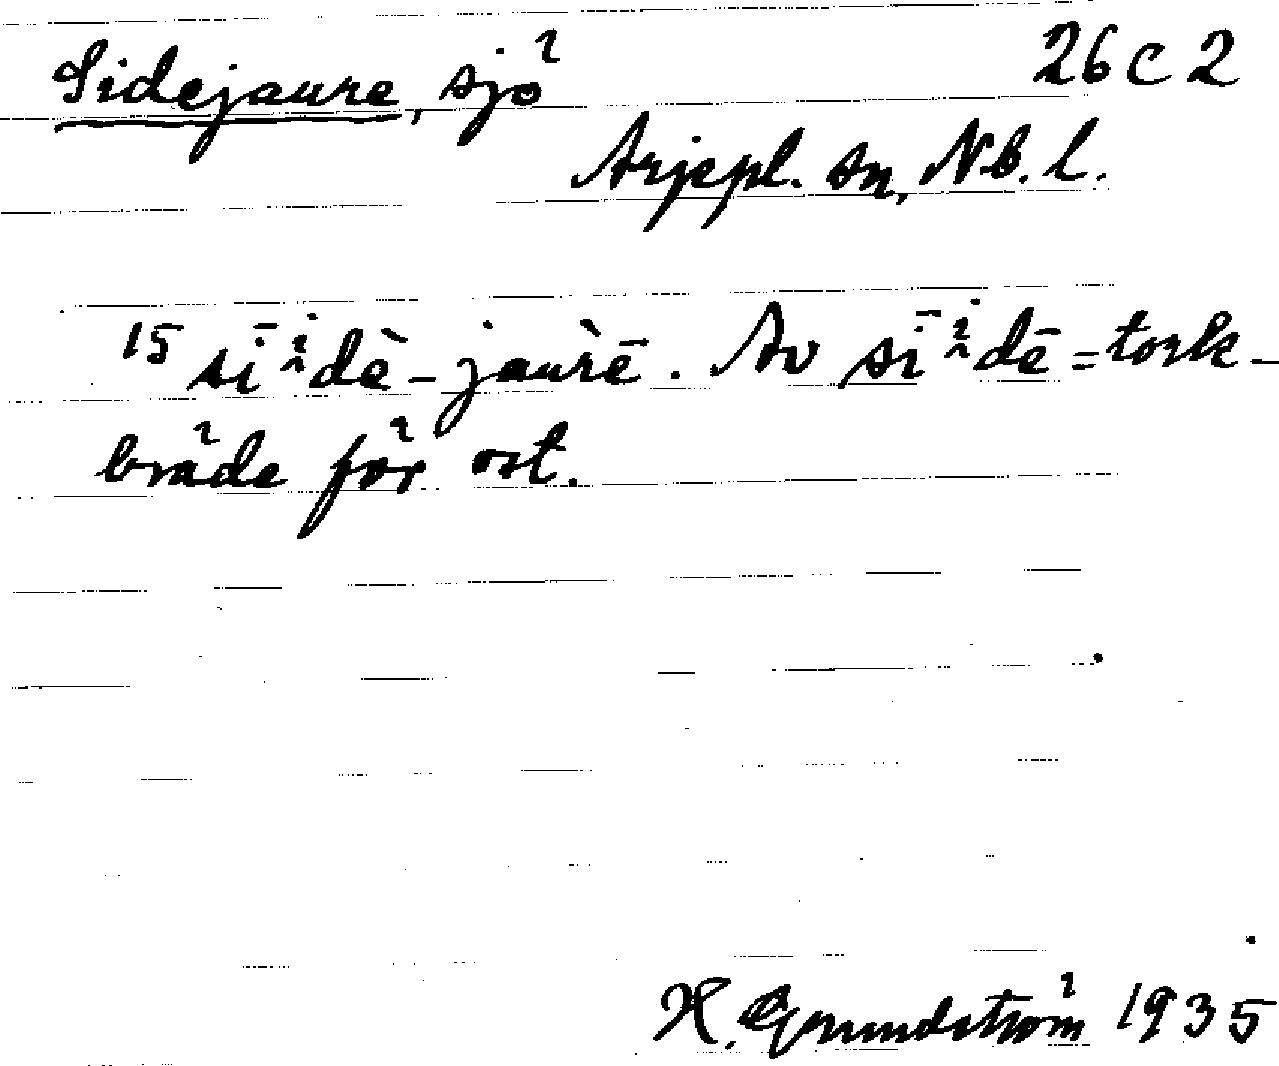 Sidejaure, sjö 26 C 2
Arjepl. sn, Nb. l.
15 sīi̭dḕ-jaùrē. Av sīi̭dē = tork-
bräde för ost.
H. Grundström 1935